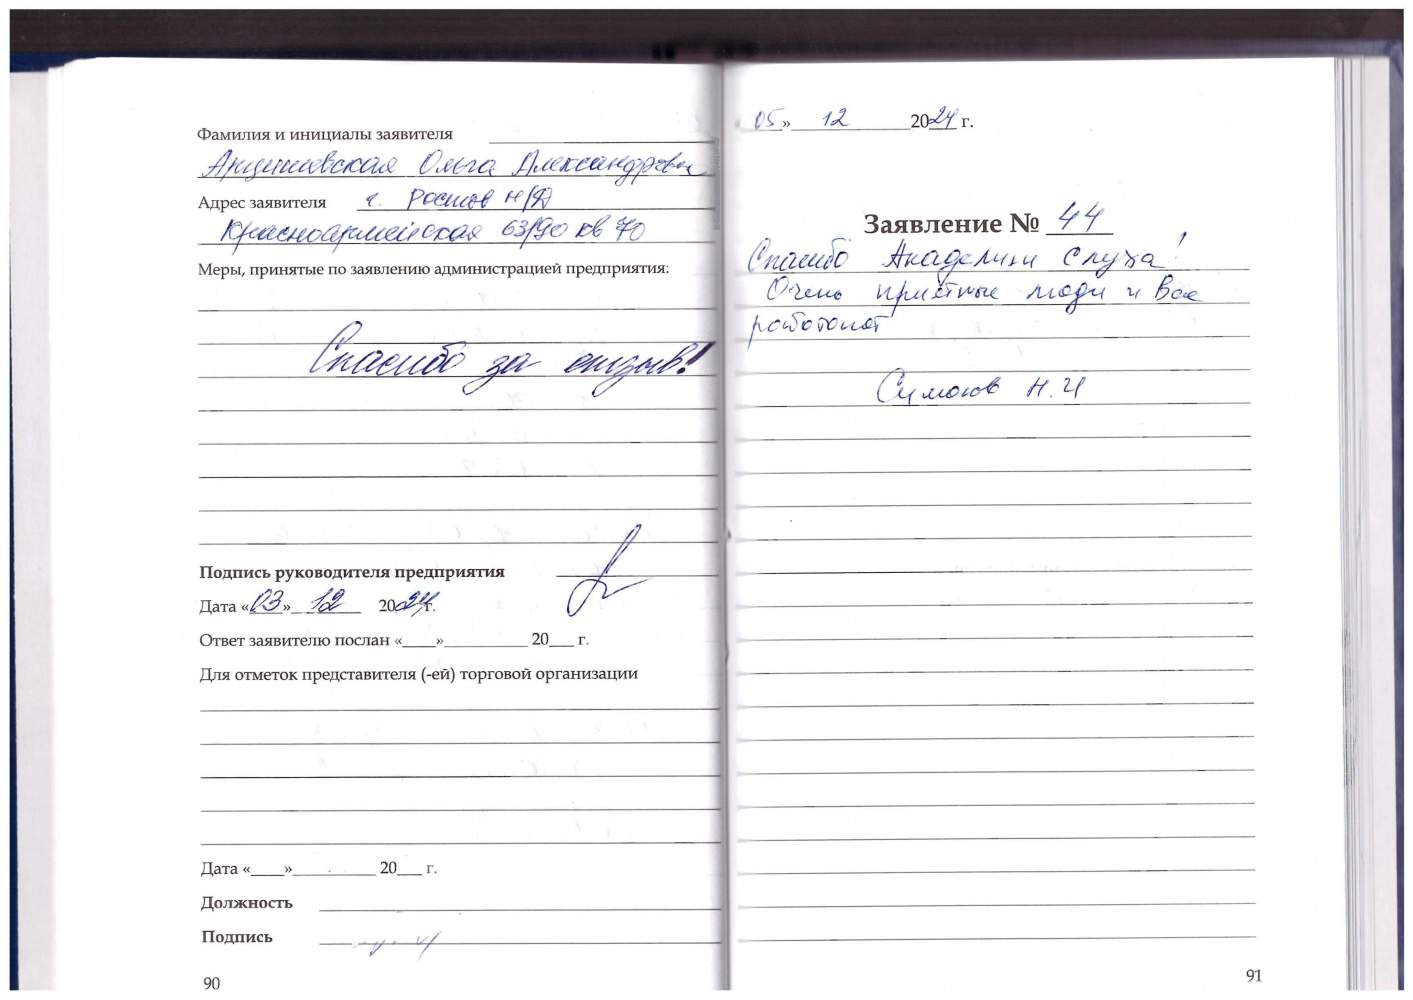 Фамилия и инициалы заявителя
Ольга Александровна
Адрес заявителя г. Ростов Н/Д
Красноармейская 63/90 кв 70
Меры, принятые по заявлению администрацией предприятия:
Спасибо за отзыв!
Подпись руководителя предприятия
Дата «03» 12 2024г.
Ответ заявителю послан «____»__________ 20___ г.
Для отметок представителя (-ей) торговой организации
Дата «____»__________ 20___ г.
Должность
Подпись
90
05» 12 2024 г.
Заявление № 44
Спасибо Академии Слуха!
Очень приятные люди и Все
работают
Н.И
91